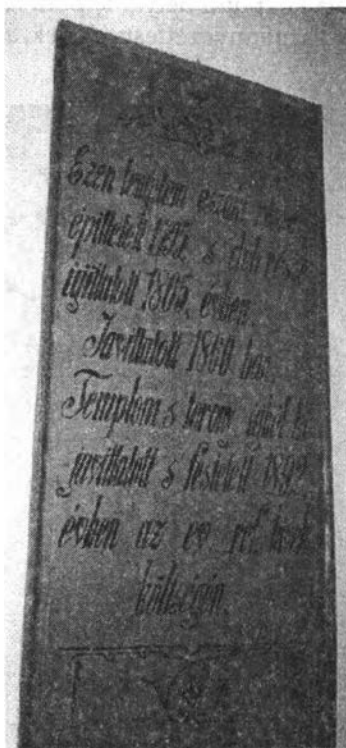 Ezen templom északi
épittetett s déli része
ujittatott 1805, évben.
Javittatott 1860 ban.
Templom s torony ismét ki
javittatott s festetett 1892
évben az ev. ref. hivek
költségén.